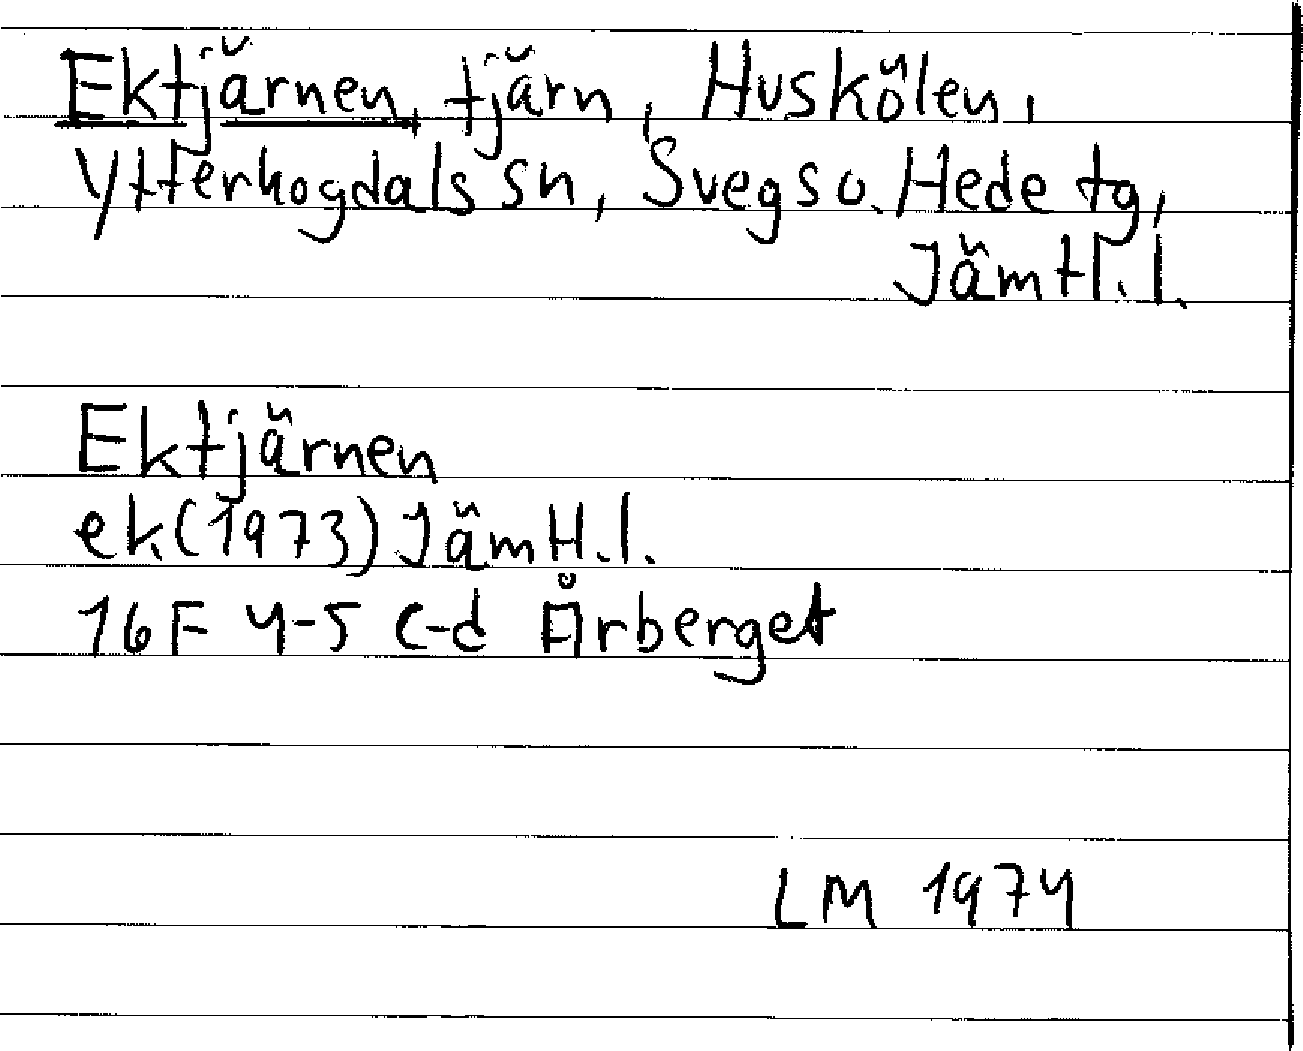 Ektjärnen, tjärn, Huskölen,
Ytterhogdals sn, Svegs o. Hede tg,
Jämtl. l.
Ektjärnen
ek (1973) Jämtl. l.
16F 4-5 c-d Årberget
LM 1974